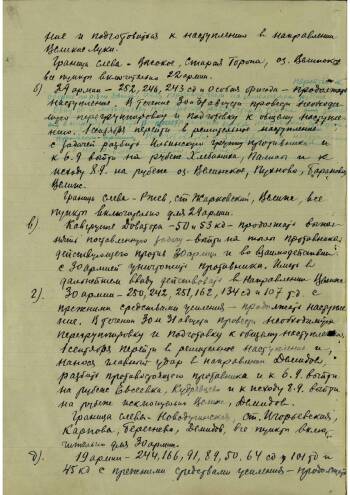 ние и подготовиться к наступлению в направлении
Великие Луки.
Граница слева – Высокое, Старая Торопа, оз. Велинское
все пункты включительно 22 армии.
б) 29 армии – 252, 246, 243 сд и особая бригада – продолжать
наступление. В течение 30 и 31 августа провести необходи-
мую перегруппировку и подготовку к общему наступле-
нию. 1 сентября перейти в решительное наступление
с задачей разбить Ильинскую группу противника и
к 6.9 выйти на рубеж Хлебаниха, и к
исходу 8.9. на рубеж оз. Велинское, Пухново,
Велиж.
Граница слева – Ржев, ст. Жарковский, Велиж, все
пункты включительно для 29 армии.
в) Кавгруппе Доватора – 50 и 53 кд – продолжать выпол-
нять поставленную задачу – выйти на тылы противника,
действующего против 30 армии и во взаимодействии
с 30 армией уничтожить противника. Иметь в
дальнейшем ввиду действовать в направлении Велиж.
г) 30 армии – 250, 242, 251, 162, 134 сд и 107 тд. с
прежними средствами усиления – продолжать наступле-
ние. В течение 30 и 31 августа провести необходимую
перегруппировку и подготовку к общему наступлению,
1 сентября перейти в решительное наступление и
нанося главный удар в направлении Демидов,
разбить противостоящего противника и к 6.9. выйти
на рубеж Евсеевка, и к исходу 8.9. выйти
на рубеж исключительно Велиж, Демидов.
Граница слева – Новодугинская, ст. Игоревская,
Карпова, Береснево, Демидов, все пункты вклю-
чительно для 30 армии.
д) 19 армии – 244, 166, 91, 89, 50, 64 сд, 101 тд и
45 кд с прежними средствами усиления – продолжать